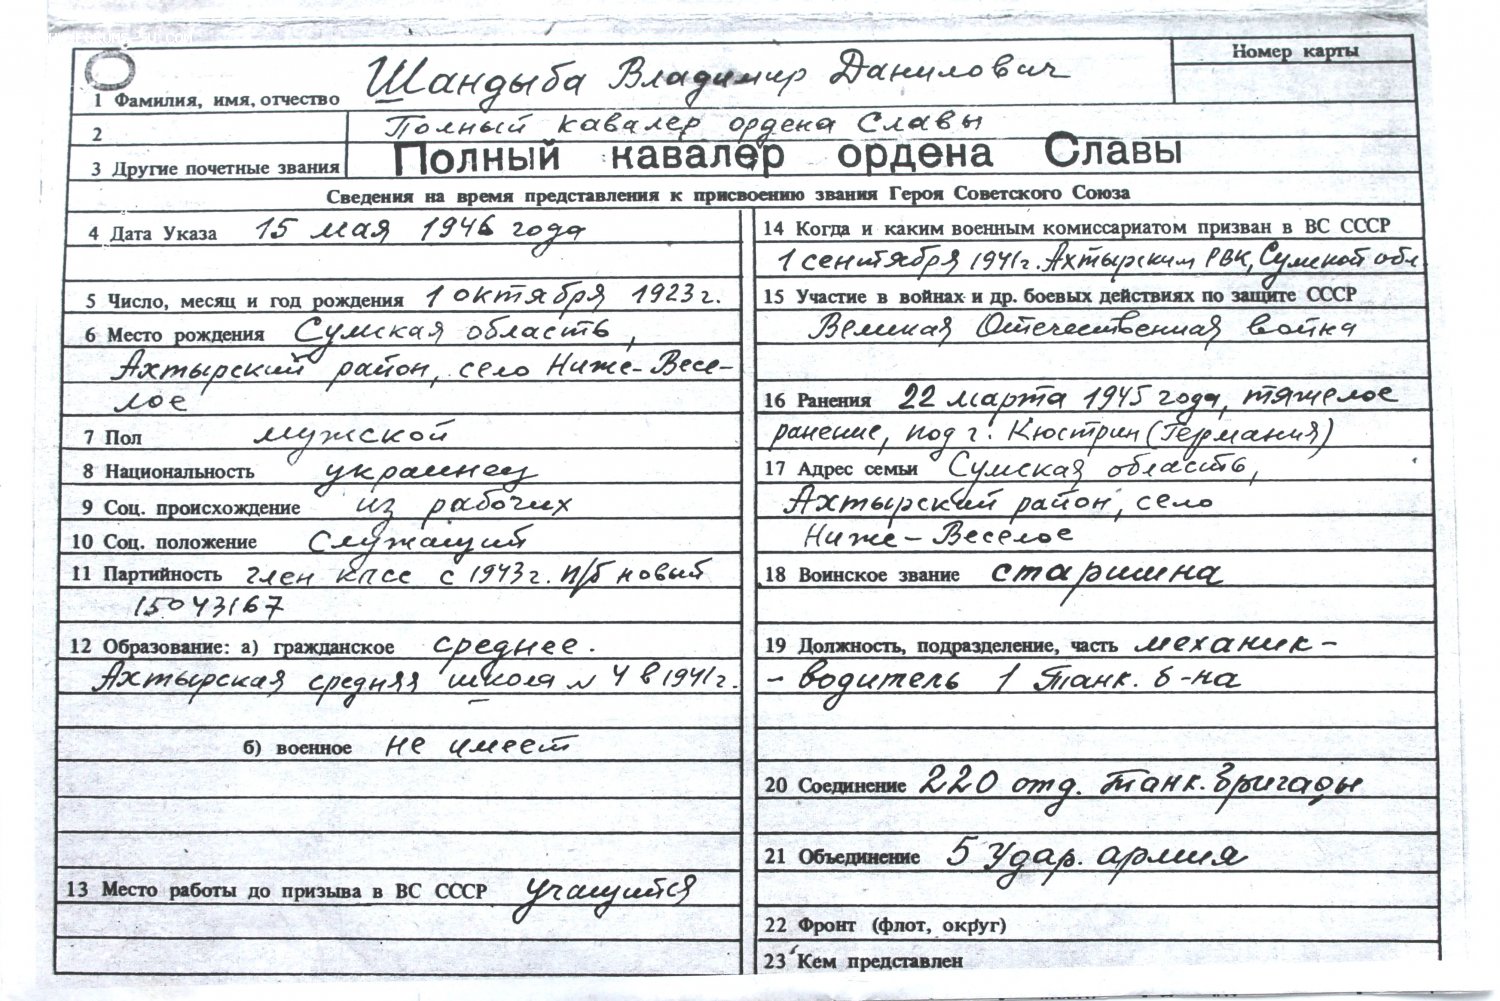 Номер карты
Шандыба Владимир Данилович
1 Фамилия, имя, отчество
2 Полный кавалер ордена Славы
3 Другие почетные звания Полный кавалер ордена Славы
Сведения на время представления к присвоению звания Героя Советского Союза
4 Дата Указа 15 мая 1946 года
5 Число, месяц и год рождения 1 октября 1923 г.
6 Место рождения Сумская область,
Ахтырский район, село Ниже-Весе-
лое
7 Пол мужской
8 Национальность украинец
9 Соц. происхождение из рабочих
10 Соц. положение Служащий
11 Партийность член КПСС с 1943 г. п/б новый
15043167
12 Образование: а) гражданское среднее.
Ахтырская средняя школа № 4 в 1941 г.
б) военное не имеет
13 Место работы до призыва в ВС СССР учащийся
14 Когда и каким военным комиссариатом призван в ВС СССР
1 сентября 1941 г. Ахтырским РВК, Сумской обл
15 Участие в войнах и др. боевых действиях по защите СССР
Великая Отечественная война
16 Ранения 22 марта 1945 года, тяжелое
ранение, под г. Кюстрин (Германия)
17 Адрес семьи Сумская область,
Ахтырский район, село
Ниже-Веселое
18 Воинское звание старшина
19 Должность, подразделение, часть механик-
- водитель 1 танк. б-на
20 Соединение 220 отд. танк. бригады
21 Объединение 5 Удар. армия
22 Фронт (флот, округ)
23 Кем представлен